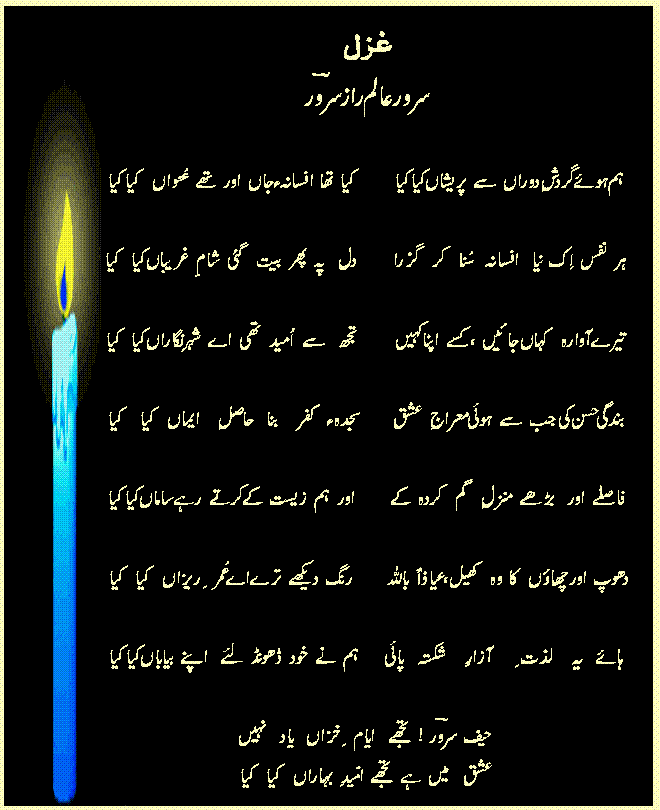 غزل
سرور عالم راز سرورؔ
ہم ہوئے گردش دوراں سے پریشاں کیا کیا کیا تھا افسانہء جاں اور تھے عنواں کیا کیا
ہر نفس اِک نیا افسانہ سُنا کر گزرا دل پہ پھر بیت گئی شامِ غریباں کیا کیا
تیرے آوارہ کہاں جائیں ،کسے اپنا کہیں تجھ سے اُمید تھی اے شہرِ نگاراں کیا کیا
بندگی حسن کی جب سے ہوئی معراجِ عشق سجدہء کفر بنا حاصلِ ایماں کیا کیا
فاصلے اور بڑھے منزلِ گم کردہ کے اور ہم زیست کے کرتے رہے ساماں کیا کیا
دھوپ اور چھاؤں کا وہ کھیل،عیاذاً باللہ رنگ دیکھے ترے اے عُمرِ ریزاں کیا کیا
ہائے یہ لذتِ آزارِ شکستہ پائی ہم نے خود ڈھونڈ لئے اپنے بیاباں کیا کیا
حیف سرورؔ ! تجھے ایامِ خزاں یاد نہیں
عشق میں ہے تجھے اُمیدِ بہاراں کیا کیا